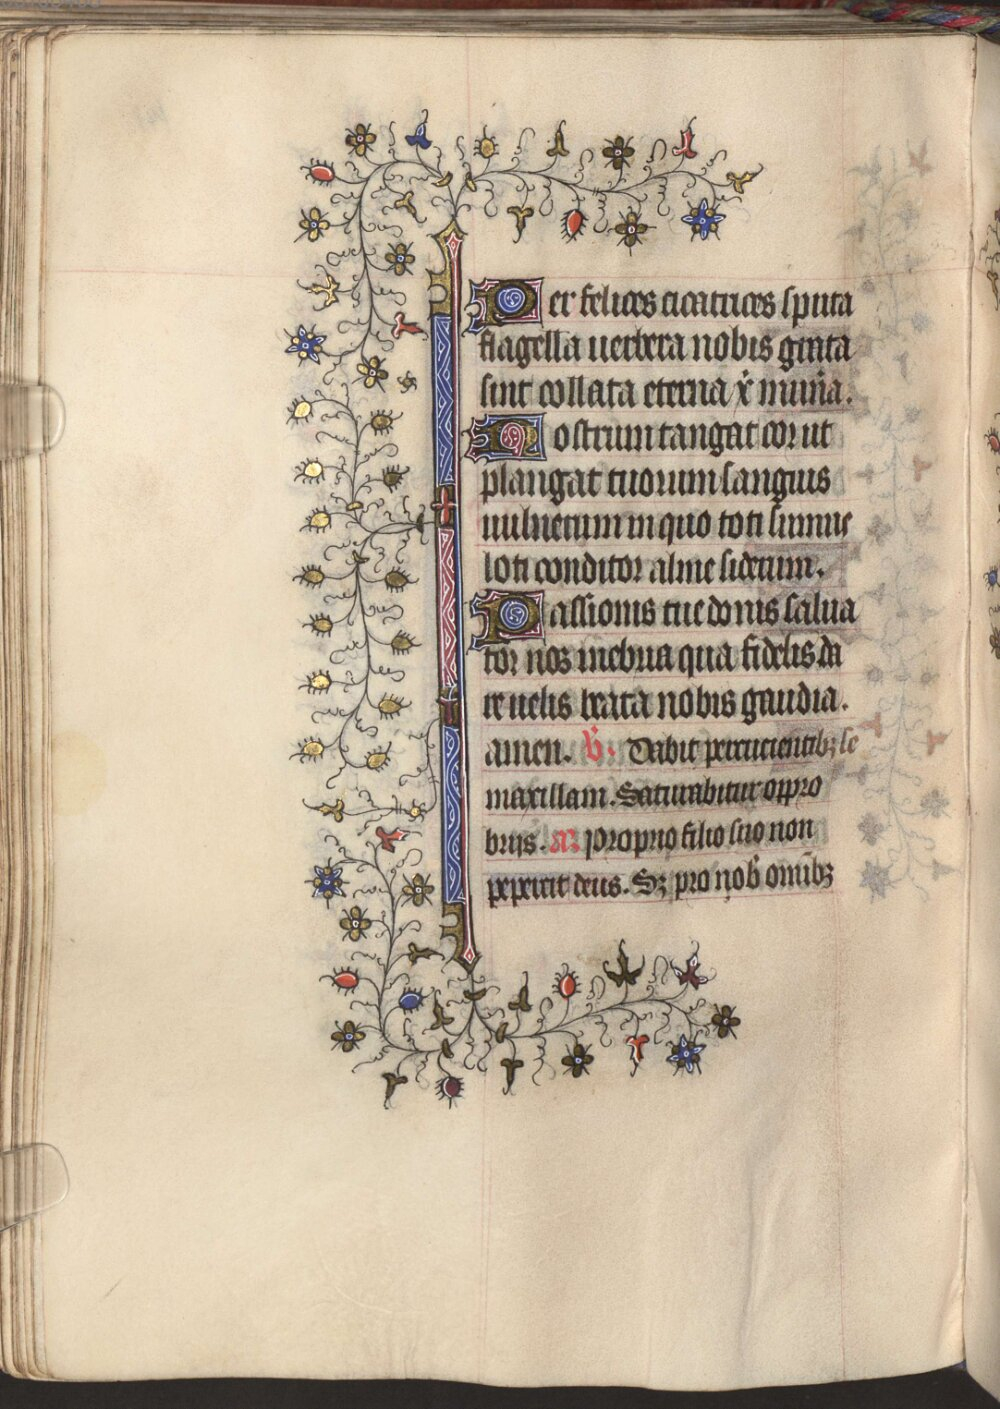 Per felices cicatrices sputa
flagella uerbera nobis grata
sint collata eterna xᷓ munᷓa.
Nostrum tangat cor ut
plangat tuorum sanguis
uulnerum in quo toti sumus
loti conditor alme siderum.
Passionis tue donis salua
tor nos inebria qua fidelis da
re uelis beata nobis gaudia.
amen. V̓. Dabit percucientibꝫ se
maxillam. Saturabitur oppro
briis. R̓. Proprio filio suo non
pepercit deus. Sꝫ pro nob̓ omibꝫ